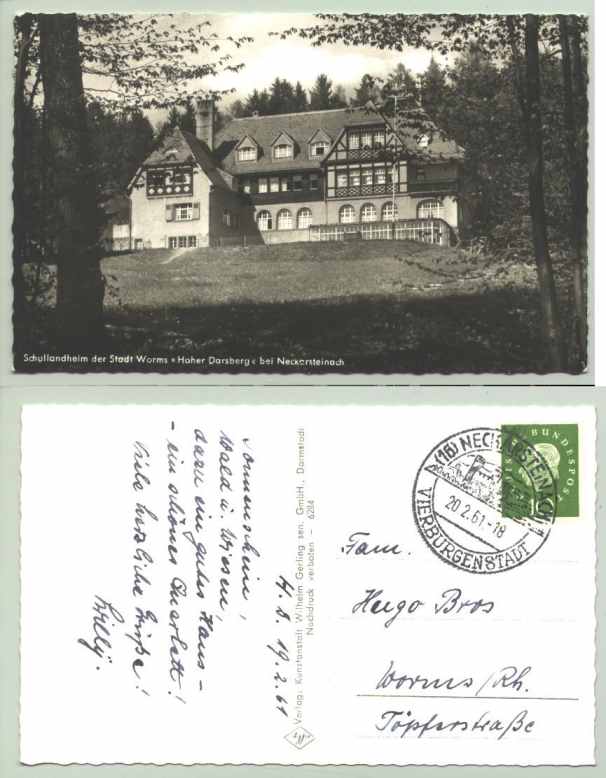 Schullandheim der Stadt Worms »Hoher Darsberg« bei Neckarsteinach
Sonnenschein,
Wald u. Wiesen,
dazu ein gutes Haus –
– ein schönes Quartett!
Viele herzliche Grüße!
Willy.
H. D. 19.2.61
Verlag: Kunstanstalt Wilhelm Gerling sen. GmbH., Darmstadt
Nachdruck verboten – 6284
(16) NECKARSTEINACH
20.2.61.-18
VIERBURGENSTADT
DEUTSCHE BUNDESPOST
10
Fam.
Hugo Bros
Worms/Rh.
Töpferstraße